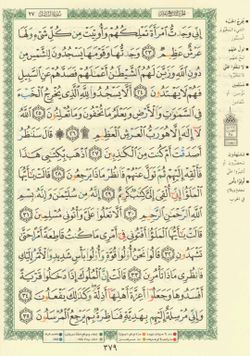 إِنِّي وَجَدتُّ ٱمْرَأَةً تَمْلِكُهُمْ وَأُوتِيَتْ مِن كُلِّ شَىْءٍ وَلَهَا
عَرْشٌ عَظِيمٌ ٢٣ وَجَدتُّهَا وَقَوْمَهَا يَسْجُدُونَ لِلشَّمْسِ مِن
دُونِ ٱللَّهِ وَزَيَّنَ لَهُمُ ٱلشَّيْطَٰنُ أَعْمَٰلَهُمْ فَصَدَّهُمْ عَنِ ٱلسَّبِيلِ
فَهُمْ لَا يَهْتَدُونَ ٢٤ أَلَّا يَسْجُدُوا۟ لِلَّهِ ٱلَّذِى يُخْرِجُ ٱلْخَبْءَ
فِى ٱلسَّمَٰوَٰتِ وَٱلْأَرْضِ وَيَعْلَمُ مَا تُخْفُونَ وَمَا تُعْلِنُونَ ٢٥ ٱللَّهُ
لَآ إِلَٰهَ إِلَّا هُوَ رَبُّ ٱلْعَرْشِ ٱلْعَظِيمِ ۩ ٢٦ قَالَ سَنَنظُرُ
أَصَدَقْتَ أَمْ كُنتَ مِنَ ٱلْكَٰذِبِينَ ٢٧ ٱذْهَب بِّكِتَٰبِى هَٰذَا
فَأَلْقِهْ إِلَيْهِمْ ثُمَّ تَوَلَّ عَنْهُمْ فَٱنظُرْ مَاذَا يَرْجِعُونَ ٢٨ قَالَتْ يَٰٓأَيُّهَا
ٱلْمَلَؤُا۟ إِنِّىٓ أُلْقِىَ إِلَىَّ كِتَٰبٌ كَرِيمٌ ٢٩ إِنَّهُۥ مِن سُلَيْمَٰنَ وَإِنَّهُۥ بِسْمِ
ٱللَّهِ ٱلرَّحْمَٰنِ ٱلرَّحِيمِ ٣٠ أَلَّا تَعْلُوا۟ عَلَىَّ وَأْتُونِى مُسْلِمِينَ ٣١
قَالَتْ يَٰٓأَيُّهَا ٱلْمَلَؤُا۟ أَفْتُونِى فِىٓ أَمْرِى مَا كُنتُ قَاطِعَةً أَمْرًا حَتَّىٰ
تَشْهَدُونِ ٣٢ قَالُوا۟ نَحْنُ أُو۟لُوا۟ قُوَّةٍ وَأُو۟لُوا۟ بَأْسٍ شَدِيدٍ وَٱلْأَمْرُ إِلَيْكِ
فَٱنظُرِى مَاذَا تَأْمُرِينَ ٣٣ قَالَتْ إِنَّ ٱلْمُلُوكَ إِذَا دَخَلُوا۟ قَرْيَةً
أَفْسَدُوهَا وَجَعَلُوٓا۟ أَعِزَّةَ أَهْلِهَآ أَذِلَّةً وَكَذَٰلِكَ يَفْعَلُونَ ٣٤
وَإِنِّى مُرْسِلَةٌ إِلَيْهِم بِهَدِيَّةٍ فَنَاظِرَةٌۢ بِمَ يَرْجِعُ ٱلْمُرْسَلُونَ ٣٥
٣٧٩